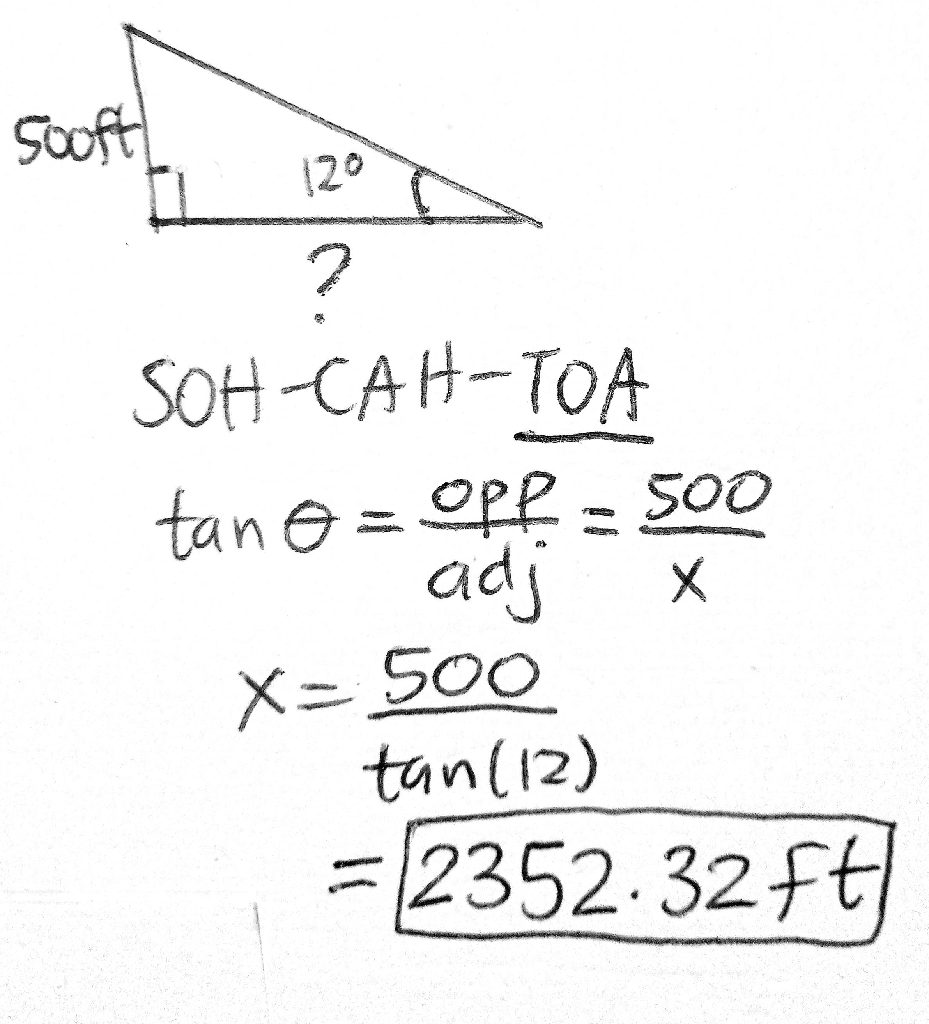 500ft
12°
?
SOH-CAH-TOA
tan θ = opp/adj = 500/x
x = 500/tan(12)
= 2352.32 ft